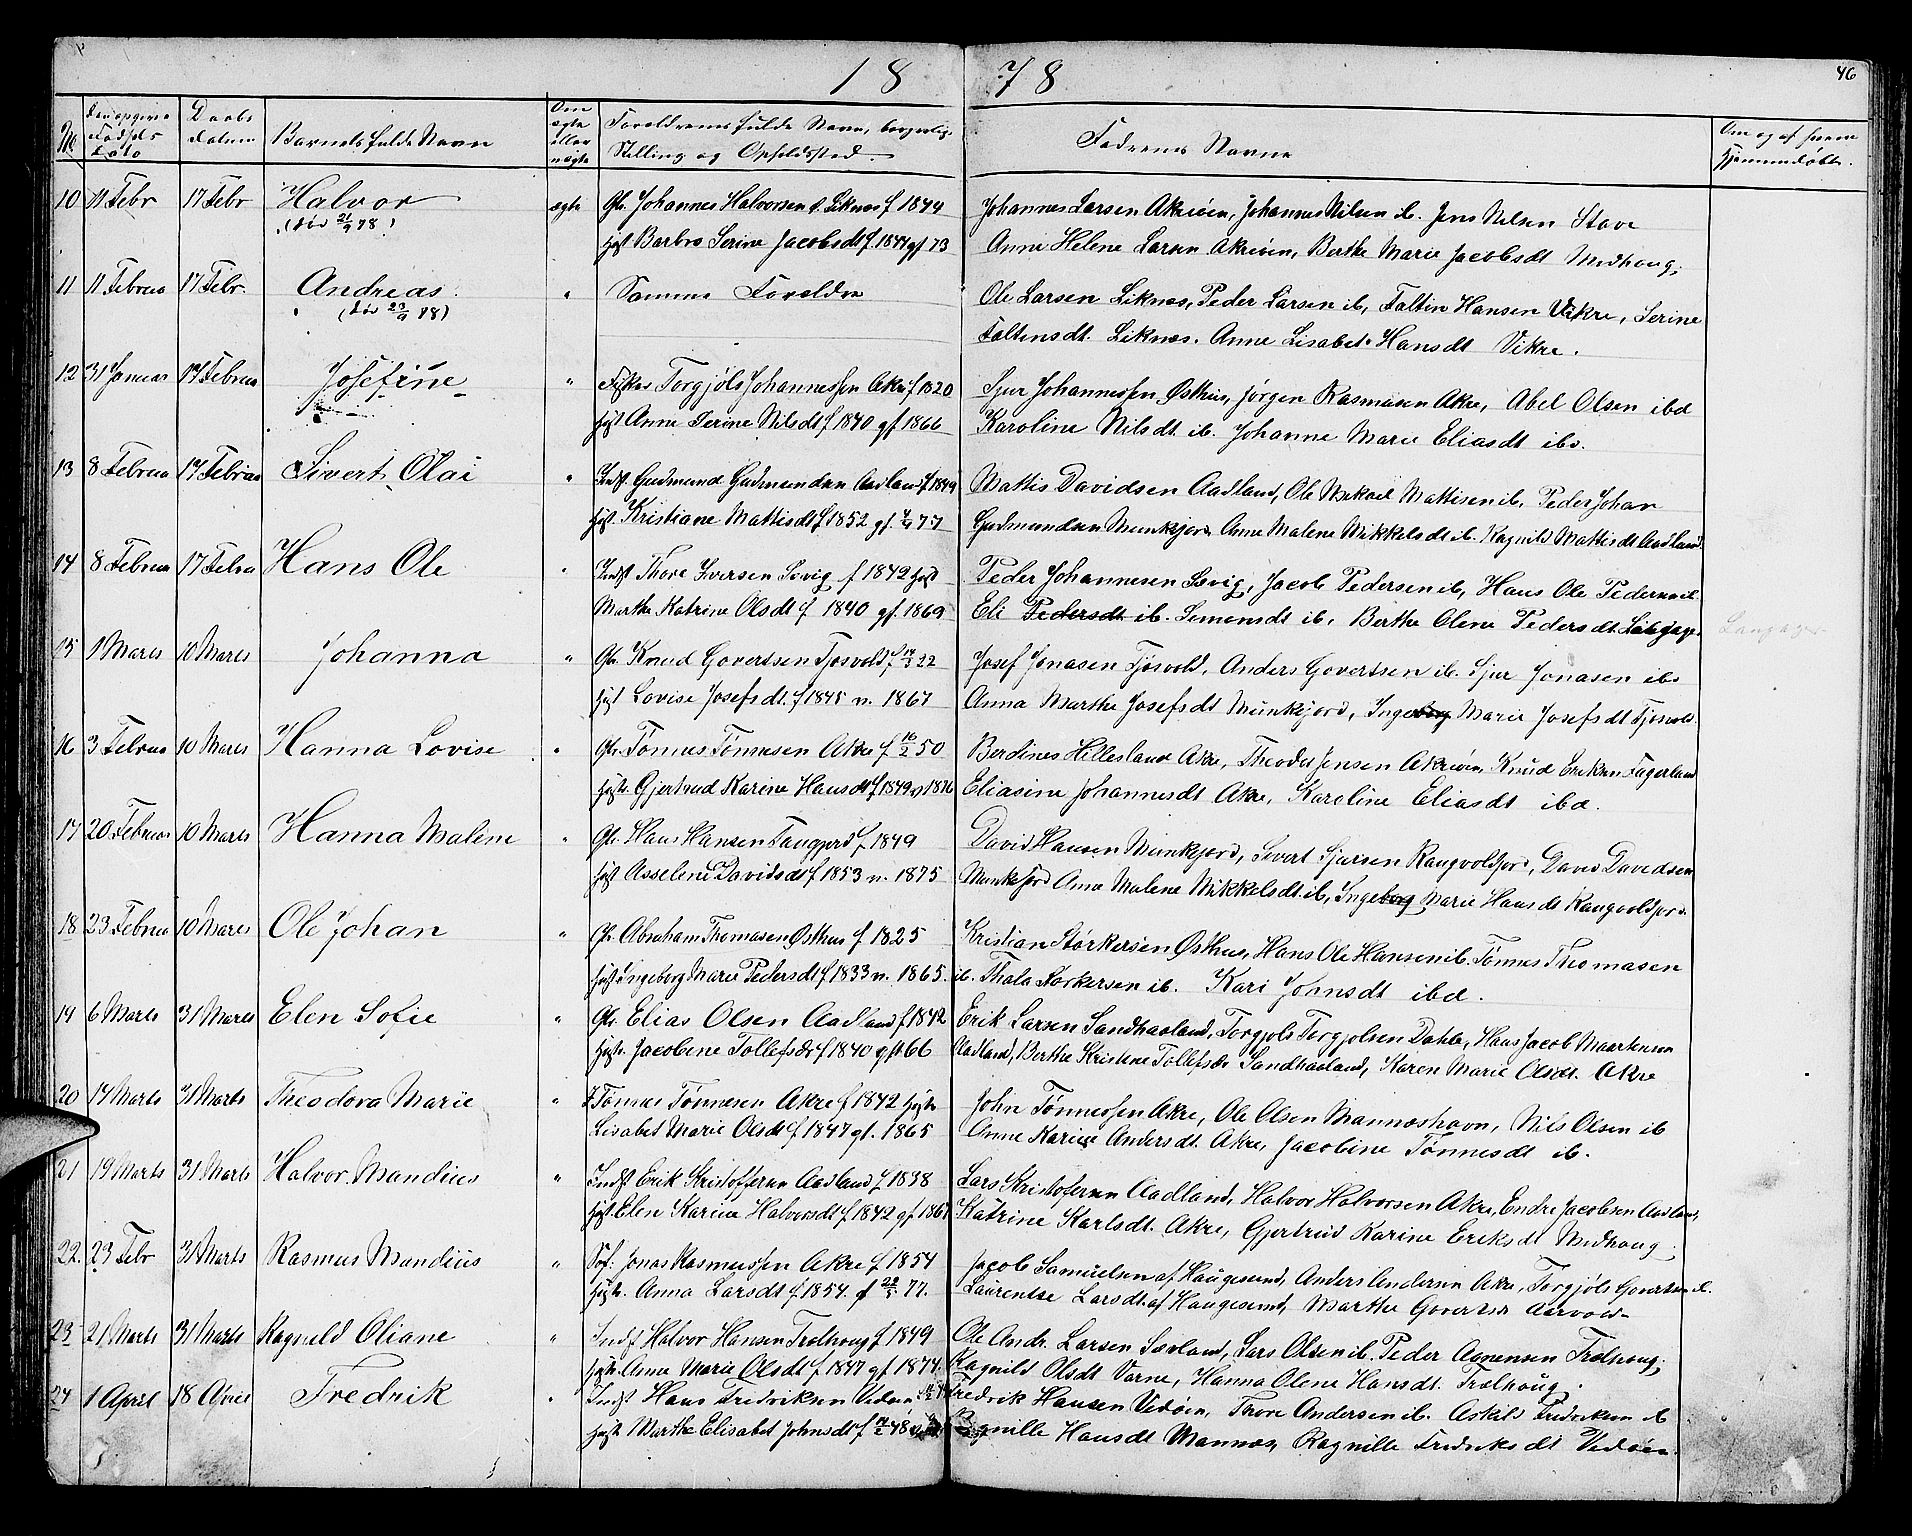 18 78
46
No. Den opgivne Fødsels Dato
Daabs Datum
Barnets fulde Navn
Om ægte eller uægte
Forældrenes fulde Navn, borgerlig Stilling og Opholdssted.
Faddernes Navne
Om og af hvem hjemmedøbt.
10 11 Febr 17 Febr Halvor ægte Gbr. Johannes Halvorsen Liknes f 1844 Johannes Larsen Akreøen, Johannes Nilsen ib. Jens Nilsen Stave
(død 21/9 78) Hust Barbro Serine Jacobsdt f. 1844 gf 73 Anne Helene Larsen Akreøen, Berthe Marie Jacobsdt Medhoug.
11 11 Februa 17 Febr. Andreas " Samme Forældre Ole Larsen Liknes, Peder Larsen ib, Faltin Hansen Vikre, Serine
(død 23/9 78) Faltinsdt. Liknes. Anne Lisabet Hansdt Vikre.
12 31 Januar 17 Februa Josefine " Fisker Torgjøls Johannessen Akre f 1820 Sjur Johannessen Østhus, Jørgen Rasmusen Akre, Abel Olsen ibd
Hust Anne Serine Nilsdt f 1840 gf 1866 Karoline Nilsdt ib. Johanne Marie Eliasdt ibd.
13 8 Februa 17 Februar Sivert Olai " Indst Gudmund Gudmundsen Aadland f 1849 Mattis Davidsen Aadland, Ole Mikael Mattisen ib. Peder Johan
Hust. Kristiane Mattisdt f 1852 gf. 77 Gudmundsen Munkejord Anne Malene Mikkelsdt ib. Ragnild Mattisdt Aadland.
14 8 Februa 17 Febru Hans Ole " Indst Thore Iversen Sevig f 1842 Hust Peder Johannesen Sevig, Jacob Pedersen ib, Hans Ole Pedersen ib.
Marthe Katrine Olsdt f 1840 gf. 1869 Eli Pedersdt ib. Simonsdt ib, Berthe Olene Pedersdt Langager
15 1 Marts 10 Marts Johanna " Gbr. Knud Govertsen Tjøsvold f 22 Josef Jonasen Tjøsvold, Anders Govertsen ib. Sjur Jonasen ibd
Hust Lovise Josefsdt. f 1845 v. 1867 Anna Marthe Josefsdt Munkejord, Ingeborg Marie Josefsdt Tjøsvold.
16 3 Februa 10 Marts Hanna Lovise " Gbr. Tønnes Tønnesen Akre f 16/2 50 Berdines Hillesland Akre, Theodor Jensen Akreøen, Knud Eriksen Fagerland
Hust. Gjertrud Karine Hansdt f 1849 v 1876 Eliasine Johannesdt Akre, Karoline Eliasdt ibd.
17 20 Februar 10 Marts Hanna Malene " Gbr. Hans Hansen f 1849 David Hansen Munkejord, Sivert Sjursen Rangvoldsjord, David Davidsen
Hust Asselene Davidsdt f 1853 v. 1875 Munkejord Anne Malene Mikkelsdt ib, Ingeborg Marie Hansdt Rangvoldsjord.
18 23 Februa 10 Marts Ole Johan " Gbr. Abraham Thomasen Østhus f 1825 Kristian Størkersen Østhus, Hans Ole Hansen ib. Tønnes Thomasen
Hust Ingeborg Marie Pedersdt f 1833 v. 1865. ib. Thala Størkersen ib. Kari Johnsdt ibd.
19 6 Marts 31 Marts Elen Sofie " Gbr. Elias Olsen Aadland f 1842 Erik Larsen Sandhaaland, Torgjøls Torgjølsen Dahle, Hans Jacob Maartensen
Hust. Jacobine Tollefsdt f 1840 gf 66 Aadland, Berthe Kristine Tollefsdt Sandhaaland, Karen Marie Olsdt. Akre
20 14 Marts 31 Marts Theodora Marie " F Tønnes Tønnesen Akre f 1842 Hust John Tønnessen Akre, Ole Olsen Manneshavn, Nils Olsen ib
Lisabet Marie Olsdt f 1847 gf. 1865 Anne Karine Andersdt. Akre, Jacobine Tønnesdt ib.
21 19 Marts 31 Marts Halvor Mandius " Indst Erik Kristoffersen Aadland f 1838 Lars Kristofersen Aadland, Halvor Halvorsen Akre, Endre Jacobsen Aadland,
Hust. Elen Karine Halvorsdt f 1842 gf 1867 Katrine Karlsdt. Akre, Gjertrud Karine Eriksdt Medhoug.
22. 23 Febr 31 Marts Rasmus Mandius " Søf: Jonas Rasmussen Akre f 1854 Jacob Samuelsen af Haugesund, Anders Andersen Akre, Torgjøls Govertsen ib.
Hust. Anna Larsdt f 1854. gf 77. Laurentse Larsdt. af Haugesund, Marthe Govertsdt Aarvold
23 21 Marts 31 Marts Ragnild Oliane " Indst Halvor Hansen Trælhoug f 1849 Ole Andr. Larsen Sævland, Lars Olsen ib. Peder Aanensen Trælhoug.
Hust. Anne Marie Olsdt f 1847 gf 1874. Ragnild Olsdt Varne, Hanna Olene Hansdt. Trælhoug.
24 1 April 18 April Fredrik " Indst Hans Fredriksen Vedøen Fredrik Hansen Vedøen, Thore Andersen ib. Askild Fredriksen ib
Hust Marthe Elisabet Johnsdt f 48 Ragnille Hansdt Mannes, Ragnille Fredriksdt Vedøen.
Langager